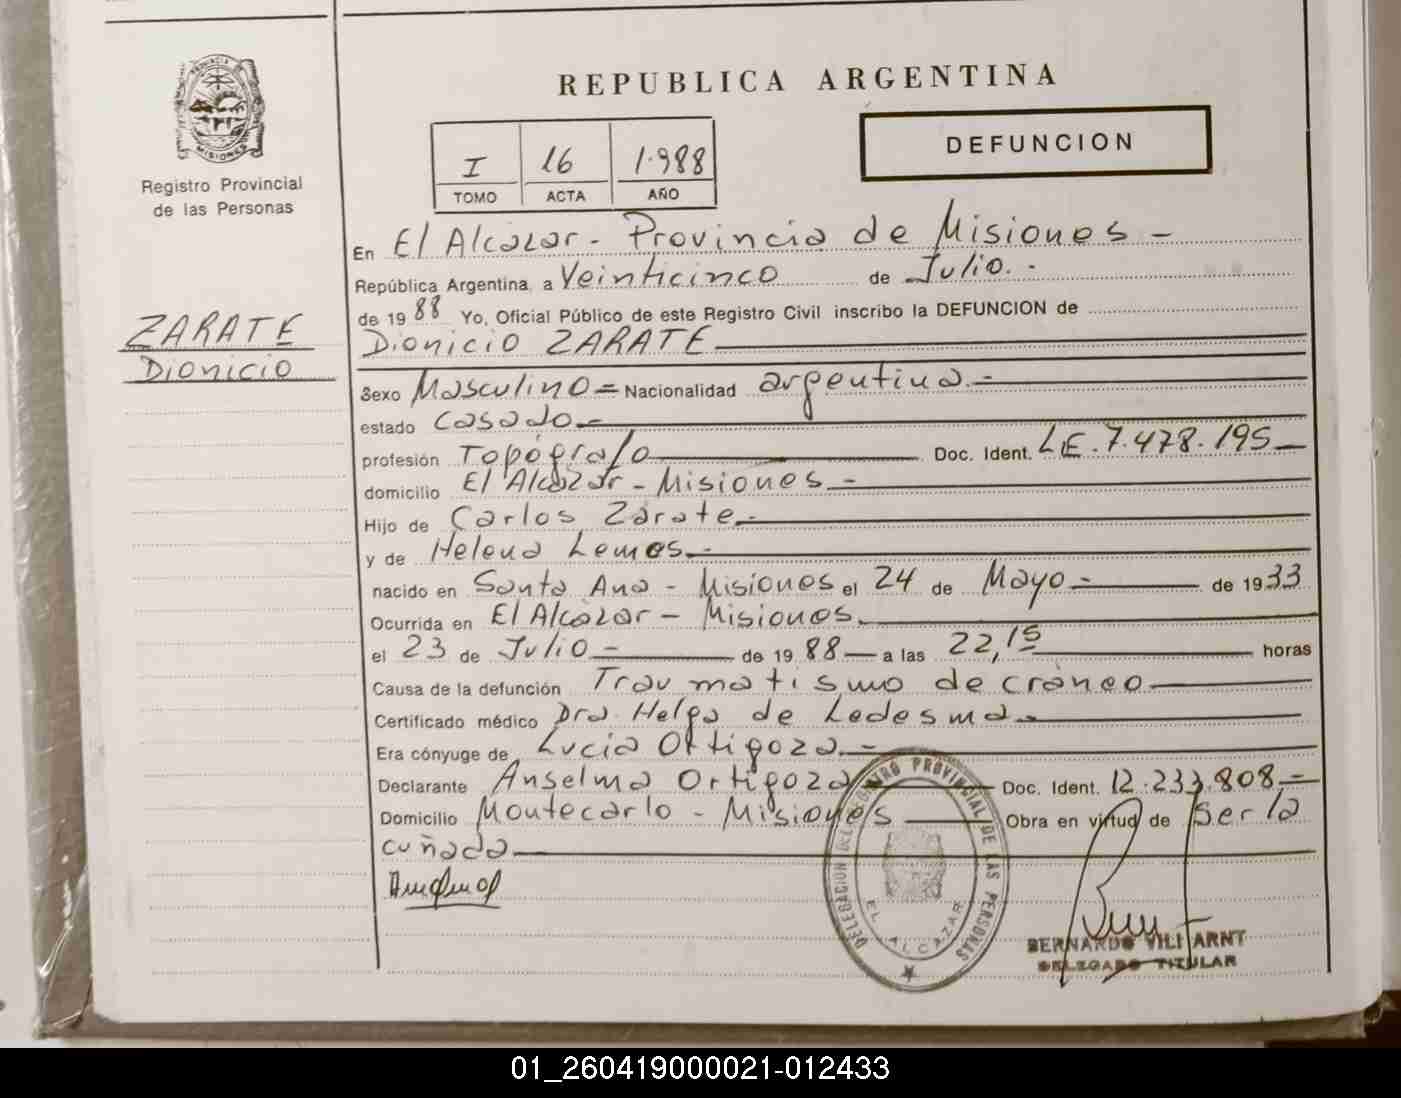 REPUBLICA ARGENTINA
PROVINCIA DE MISIONES
Registro Provincial
de las Personas
I 16 1.988
TOMO ACTA AÑO
DEFUNCION
En El Alcazar - Provincia de Misiones -
República Argentina, a Veinticinco de Julio. -
de 1988 Yo, Oficial Público de este Registro Civil inscribo la DEFUNCION de
ZARATE
Dionicio
Dionicio ZARATE
Sexo Masculino = Nacionalidad argentina. -
estado casado. -
profesión Topógrafo Doc. Ident. LE. 7.478.195 -
domicilio El Alcázar - Misiones. -
Hijo de Carlos Zárate. -
y de Helena Lemos. -
nacido en Santa Ana - Misiones el 24 de Mayo - de 1933
Ocurrida en El Alcázar - Misiones.
el 23 de Julio - de 1988 - a las 22,15 horas
Causa de la defunción Traumatismo de cráneo
Certificado médico Dra. Helga de Ledesma. -
Era cónyuge de Lucia Ortigoza. -
Declarante Anselma Ortigoza Doc. Ident. 12.233.808, -
Domicilio Montecarlo - Misiones Obra en virtud de Ser la
cuñada
DELEGACION DEL REGISTRO PROVINCIAL DE LAS PERSONAS
EL ALCAZAR
BERNARDO VILL ARNT
DELEGADO TITULAR
01_260419000021-012433